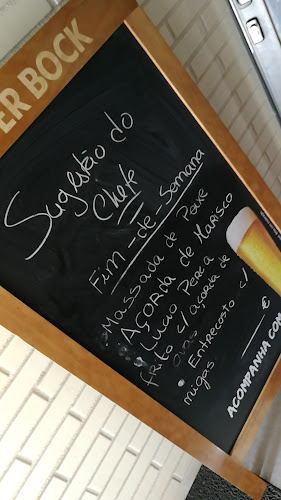 ER BOCK
Sugestão do
Chefe
Fim-de-Semana
• Massada de Peixe
• Açorda de Marisco
• Lucio Perca
frito c/ açorda de
ovas
• Entrecosto c/
migas
€
ACOMPANHA COM